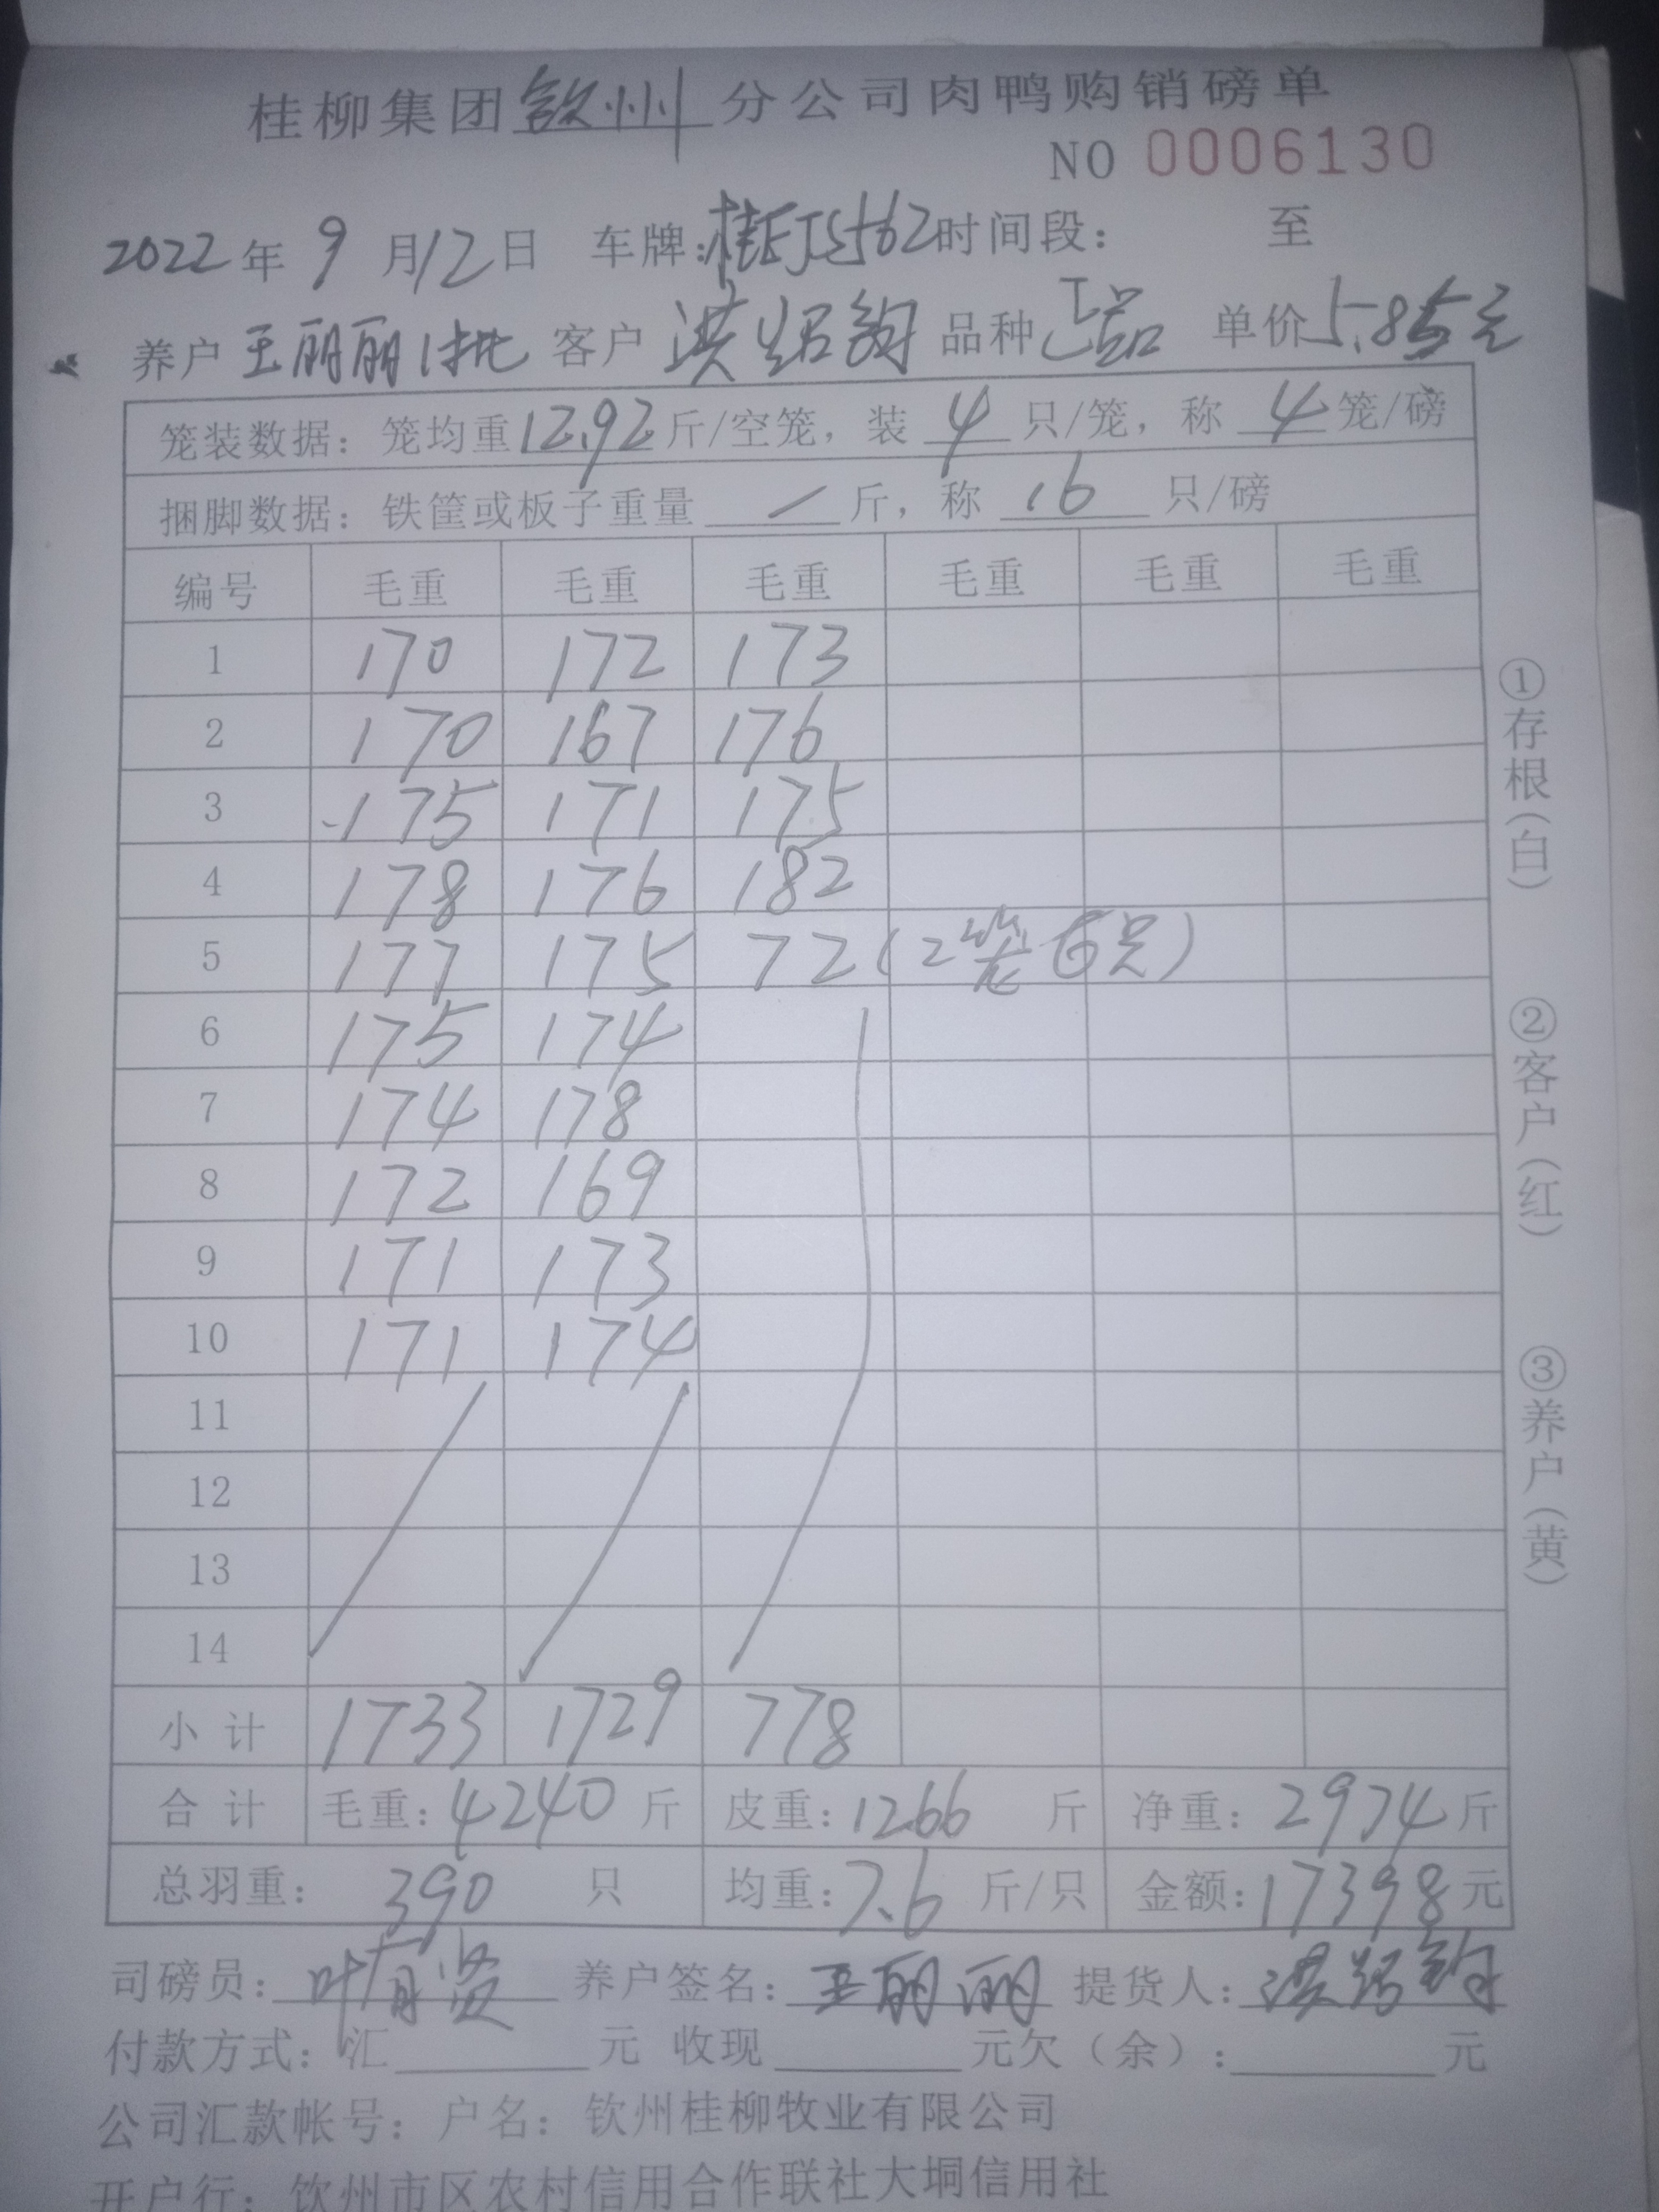 桂柳集团钦州分公司肉鸭购销磅单
NO 0006130
2022年9月12日 车牌:桂EJ5162时间段: 至
养户 王丽丽1批 客户 洪绍钧 品种 正品 单价5.85元
笼装数据: 笼均重12.92斤/空笼, 装 4 只/笼, 称 4 笼/磅
捆脚数据: 铁筐或板子重量 / 斤, 称 16 只/磅
编号 毛重 毛重 毛重 毛重 毛重 毛重
1 170 172 173
2 170 167 176
3 175 171 175
4 178 176 182
5 177 175 72 (2笼6只)
6 175 174
7 174 178
8 172 169
9 171 173
10 171 174
11
12
13
14
小计 1733 1729 778
合计 毛重: 4240 斤 皮重: 1266 斤 净重: 2974 斤
总羽重: 390 只 均重: 7.6 斤/只 金额: 17398元
司磅员: 叶有贤 养户签名: 王丽丽 提货人: 洪绍钧
付款方式: 汇 元 收现 元欠(余): 元
公司汇款帐号: 户名: 钦州桂柳牧业有限公司
开户行: 钦州市区农村信用合作联社大垌信用社
①存根(白)
②客户(红)
③养户(黄)